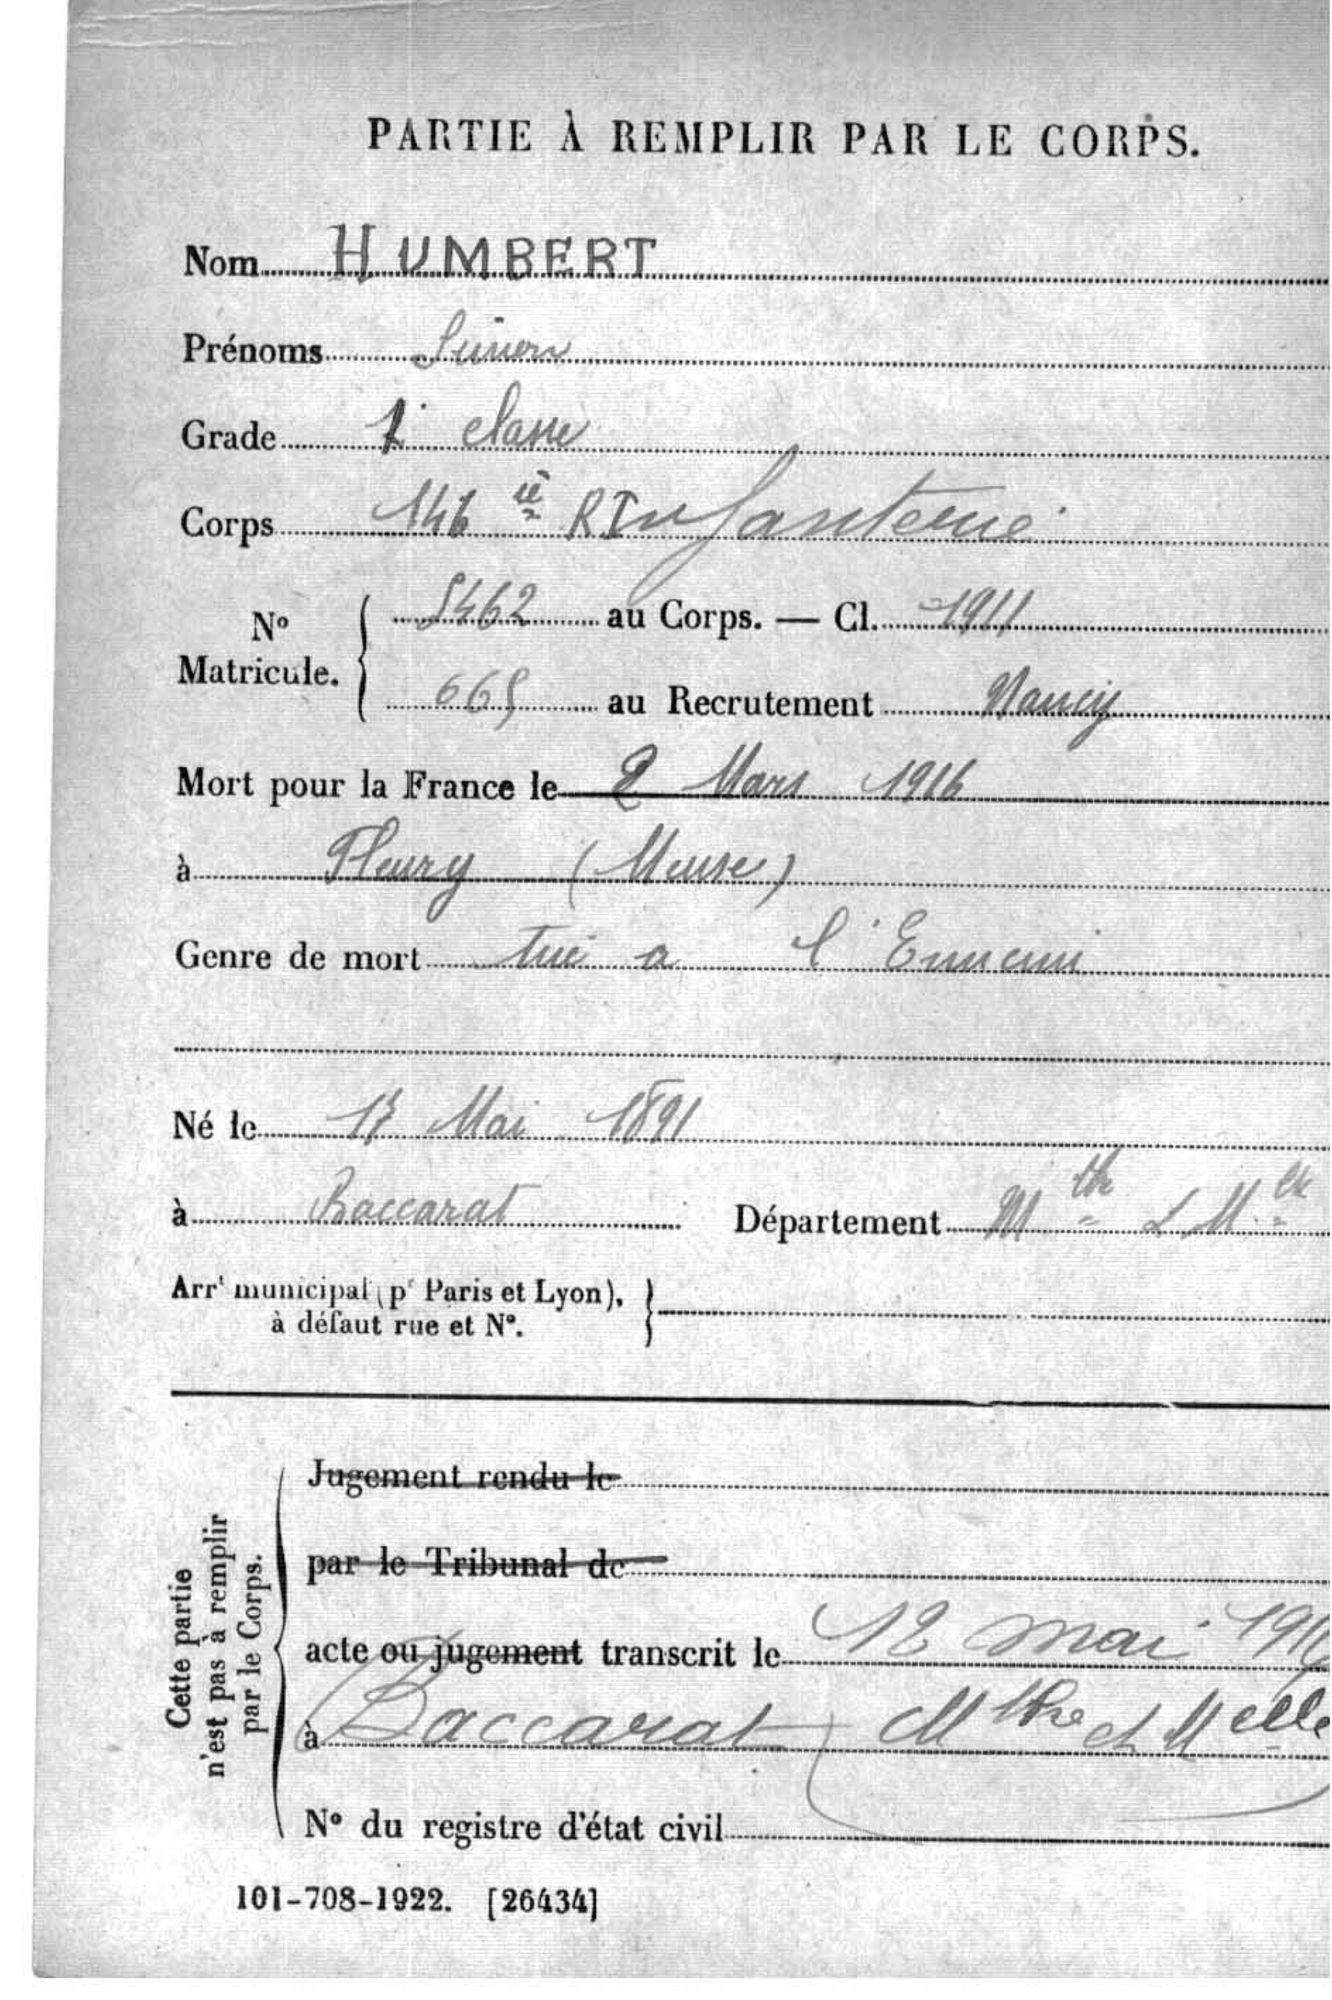 PARTIE À REMPLIR PAR LE CORPS.
Nom HUMBERT
Prénoms Simon
Grade classe
Corps 146 iè RInfanterie
No Matricule. 5462 au Corps. — Cl. 1911
665 au Recrutement Nancy
Mort pour la France le 2 Mars 1916
à Fleury (Meuse)
Genre de mort tué a l'Ennemi
Né le 17 Mai 1891
à Baccarat Département Mthe & Mlle
Arrt municipal (pr Paris et Lyon),
à défaut rue et N°.
Cette partie
n'est pas à remplir
par le Corps.
Jugement rendu le
par le Tribunal de
acte ou jugement transcrit le 12 mai
à Baccarat (Mthe et Melle
N° du registre d'état civil
101-708-1922. [26434]